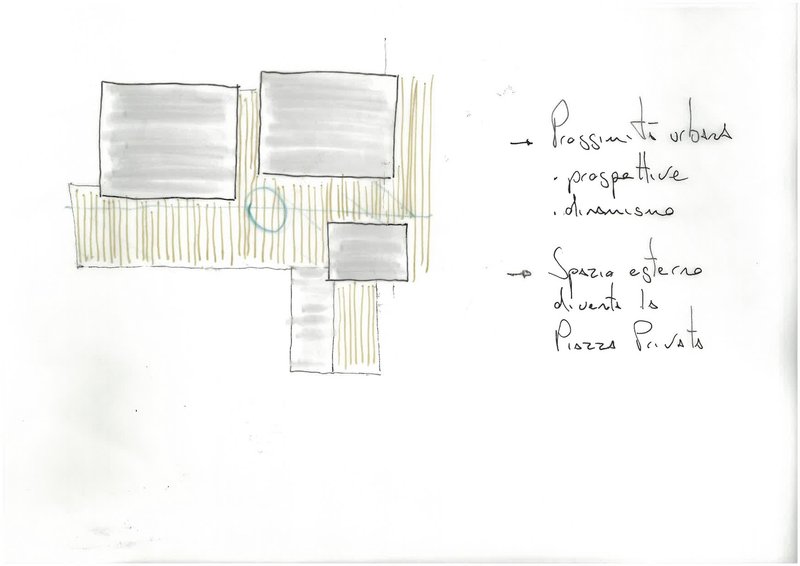 → Prossimità urbana
. prospettive
. dinamismo
→ Spazio esterno
diventa la
Piazza Privata